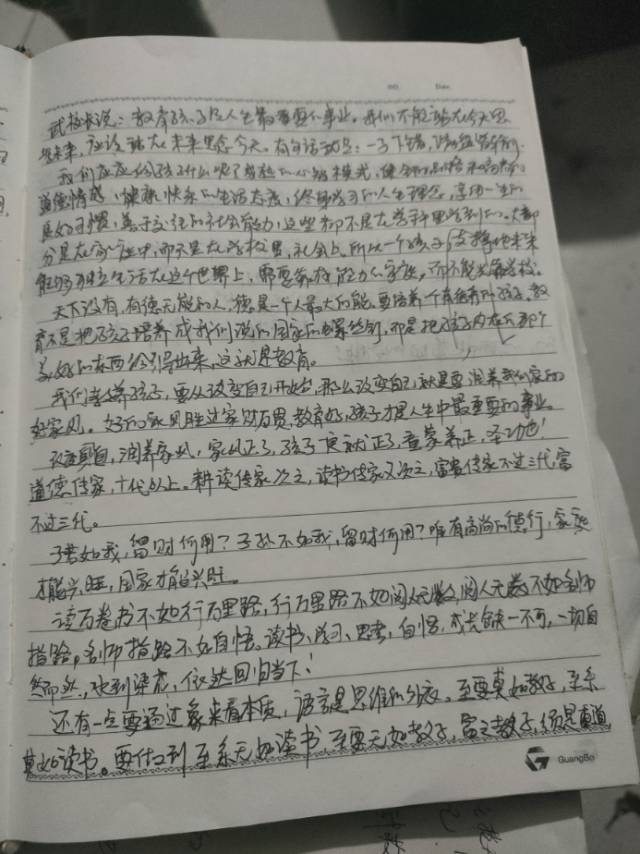 NO. Date
武校长说：教育孩子是人生最重要的事业。我们不能站在今天思
考未来，应该站在未来思念今天。有句话叫：一步下错，满盘皆输。
我们应应给孩子什么呢？
道德情感、健康快乐的生活态度，终身学习的人生理念，享用一生的
良好习惯，善于交往的社会能力，这些都不是在学科里学到的。大部
分是在家庭中，而不是在学校里，社会上。所以一个孩子
能够独立生活在这个世界上，需要靠有能力的家庭，而不能光靠学校。
天下没有，有德无能的人，德是一个人最大的能，要培养一个有德有才的孩子。教
育不是把孩子培养成我们说的国家的螺丝钉，而是把孩子内在的那个
美好的东西给引导出来，这才是教育。
我们教养孩子，要从改变自己开始，那么改变自己就是要润养我们家的
好家风。好的家风胜过家财万贯，教育好孩子才是人生中最重要的事业。
润养家风，家风正了，孩子就正了，童蒙养正，圣功也！
道德传家，十代以上。耕读传家次之，读书传家又次之，富贵传家不过三代，富
不过三代。
子若如我，留财何用？子孙不如我，留财何用？唯有高尚的德行，家庭
才能兴旺，国家才能兴旺。
读万卷书不如行万里路，行万里路不如阅人无数，阅人无数不如名师
指路，名师指路不如自悟。读书、学习、思考、自悟，缺一不可，一切自
依然回归当下！
还有一点要通过现象看本质，语言是思维的外衣。至要莫如教子，至乐
莫如读书。要什么到至乐无如读书，至要无如教子，富之教子，须是重道
GuangBo